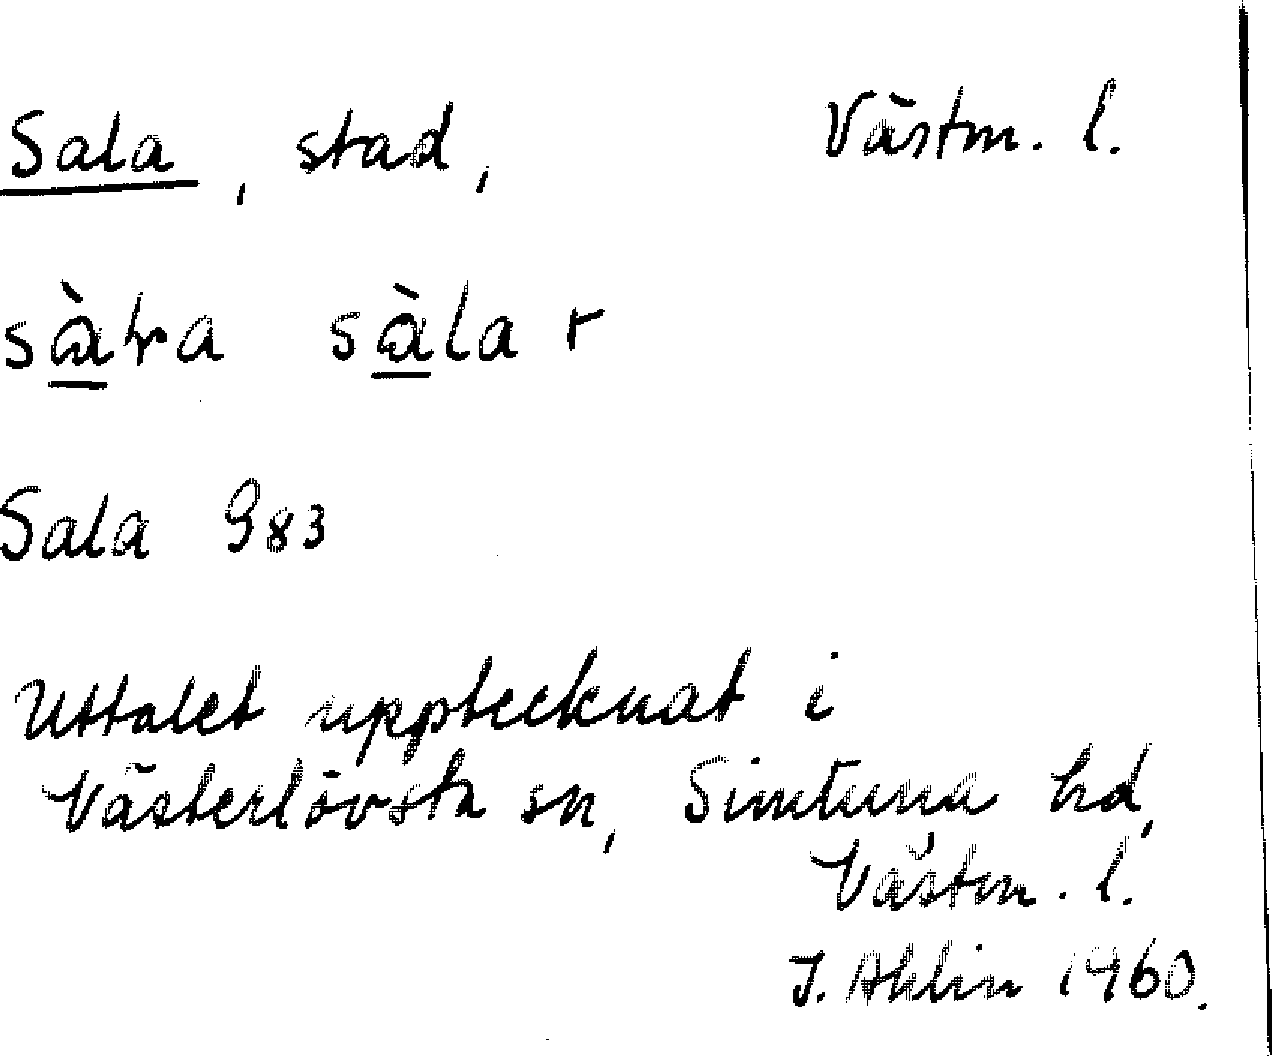 Sala, stad, Västm. l.
sàɽa sàla r
Sala 983
Uttalet upptecknat i
Västerlövsta sn, Simtuna hd,
Västm. l.
J. Ahlin 1960.